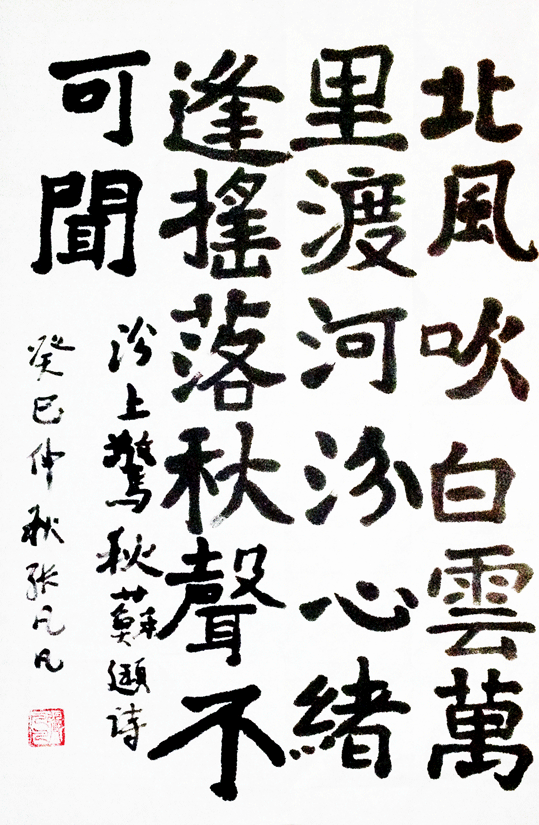 北風吹白雲萬
里渡河汾心緒
逢搖落秋聲不
可聞
汾上驚秋蘇頲詩
癸巳仲秋張凡凡